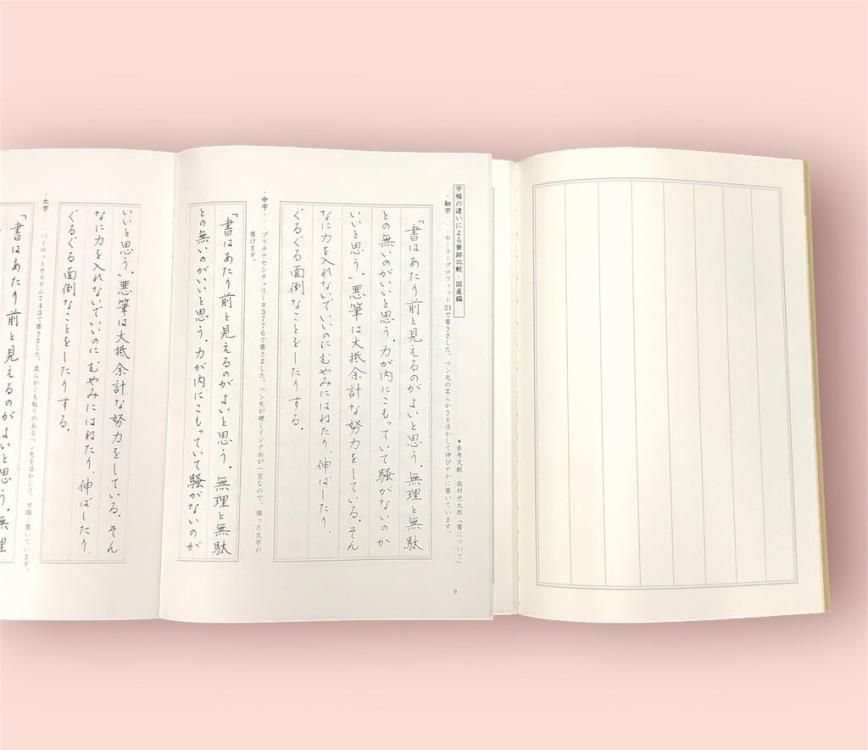 字幅の違いによる筆跡比較・国産編
・細字・・・セーラープロフィット21で書きました。ペン先の柔らかさを活かして伸びやかに書いています。
●参考文献 高村光太郎「書について」
「書はあたり前と見えるのがよいと思う。無理と無駄
との無いのがいいと思う。力が内にこもっていて騒がないのが
いいと思う。」悪筆は大抵余計な努力をしている。そん
なに力を入れないでいいのにむやみにはねたり、伸ばしたり、
ぐるぐる面倒なことをしたりする。
・中字・・・プラチナセンチュリー#3776で書きました。ペン先が硬くインク出が一定なので、揃った文字が
書けます。
「書はあたり前と見えるのがよいと思う。無理と無駄
との無いのがいいと思う。力が内にこもっていて騒がないのが
いいと思う。」悪筆は大抵余計な努力をしている。そん
なに力を入れないでいいのにむやみにはねたり、伸ばしたり、
ぐるぐる面倒なことをしたりする。
・太字・・・パイロットカスタム743で書きました。柔らかくも粘りのあるペン先を活かして、書いています。
「書はあたり前と見えるのがよいと思う。無理
9